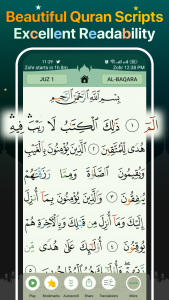 Beautiful Quran Scripts
Excellent Readability
11:29
Zahr starts in 1h 8m
Zohr 12:38 PM
JUZ 1
AL-BAQARA
بِسْمِ اللّٰهِ الرَّحْمٰنِ الرَّحِيْمِ
الٓمّٓ ۚ ذٰلِكَ الْكِتٰبُ لَا رَيْبَ ۛ فِيْهِ ۛ
هُدًى لِّلْمُتَّقِيْنَ الَّذِيْنَ يُؤْمِنُوْنَ
بِالْغَيْبِ وَيُقِيْمُوْنَ الصَّلٰوةَ وَمِمَّا رَزَقْنٰهُمْ
يُنْفِقُوْنَ وَالَّذِيْنَ يُؤْمِنُوْنَ بِمَآ اُنْزِلَ
اِلَيْكَ وَمَآ اُنْزِلَ مِنْ قَبْلِكَ وَبِالْاٰخِرَةِ هُمْ
يُوْقِنُوْنَ اُولٰٓئِكَ عَلٰى هُدًى مِّنْ
Play
Bookmarks
Autoscroll
Share
Translations
More